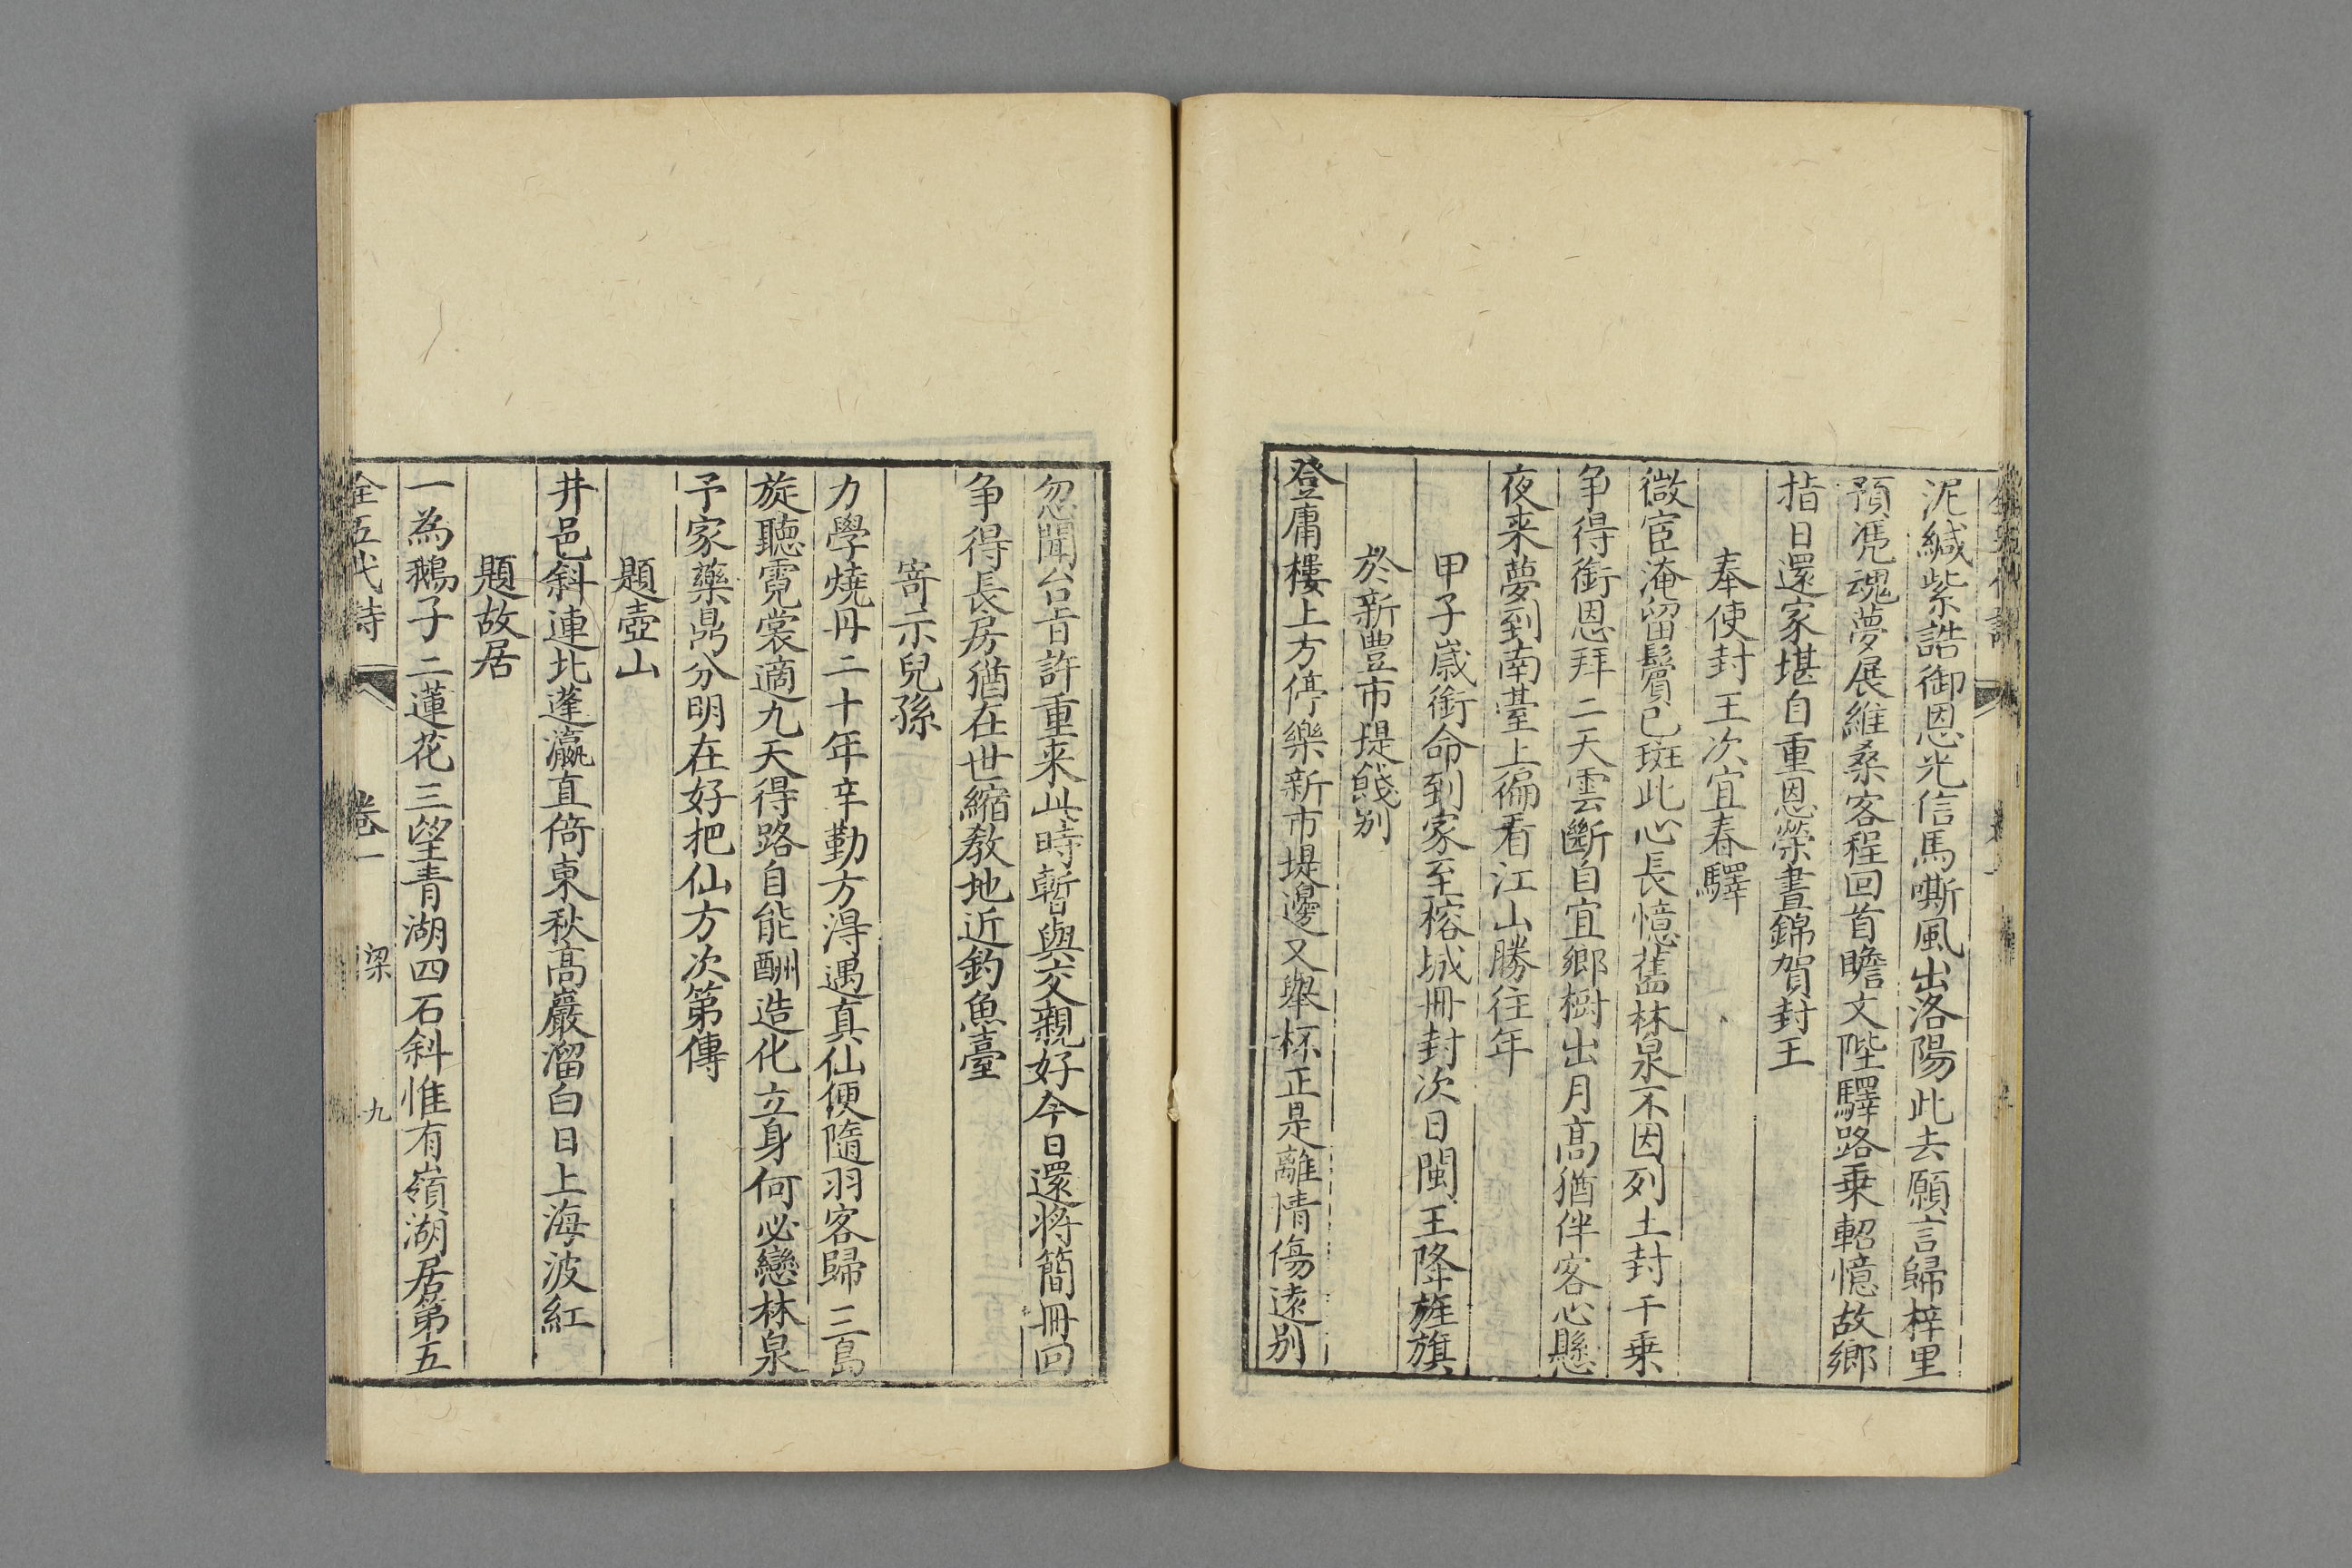 泥緘紫誥御恩光信馬嘶風出洛陽此去願言歸梓里
預凴魂夢展維桑客程回首瞻文陛驛路乗軺憶故鄉
指日還家堪自重恩榮晝錦賀封王
奉使封王次宜春驛
微宦淹留鬢已斑此心長憶舊林泉不因列土封千乗
争得銜恩拜二天雲斷自宜鄉樹出月高猶伴客心懸
夜来夢到南臺上徧看江山勝往年
甲子歲銜命到家至榕城冊封次日閩王降旌旗
於新豊市堤餞别
登庸樓上方停樂新市堤邊又舉杯正是離情傷遠别
忽聞台旨許重来此時暫與交親好今日還将簡冊回
争得長房猶在世縮教地近釣魚臺
寄示兒孫
力學燒丹二十年辛勤方得遇真仙便隨羽客歸三島
旋聽霓裳適九天得路自能酬造化立身何必戀林泉
予家藥鼎分明在好把仙方次第傳
題壺山
井邑斜連北蓬瀛直倚東秋高巖溜白日上海波紅
題故居
一為鵝子二蓮花三望青湖四石斜惟有嶺湖居第五
全五代詩 卷一 梁 九